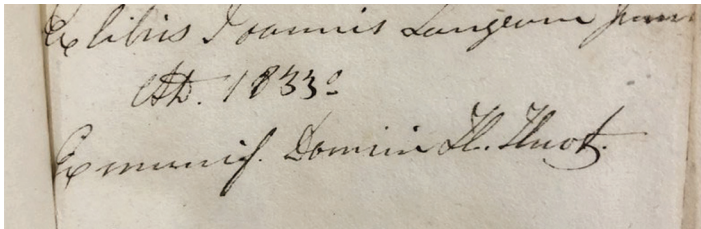 Ex libris Joannis Langevin
Ad. 1833º
Ex munif. Domini H. Huot.